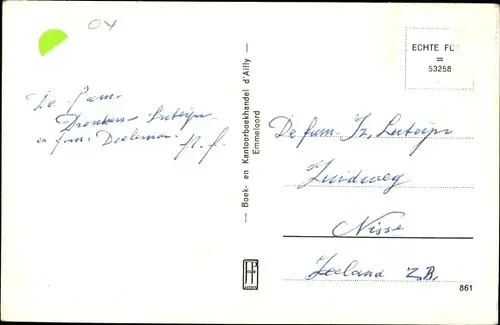 OY
ECHTE FOTO
=
53258
De fam.
Dronkers - Luteijn
en fam. Doeleman. P.f.
— Boek- en Kantoorboekhandel d'Ailly —
Emmeloord
De fam. Iz. Luteijn
Zuidweg
Nisse
Zeeland Z.B.
861